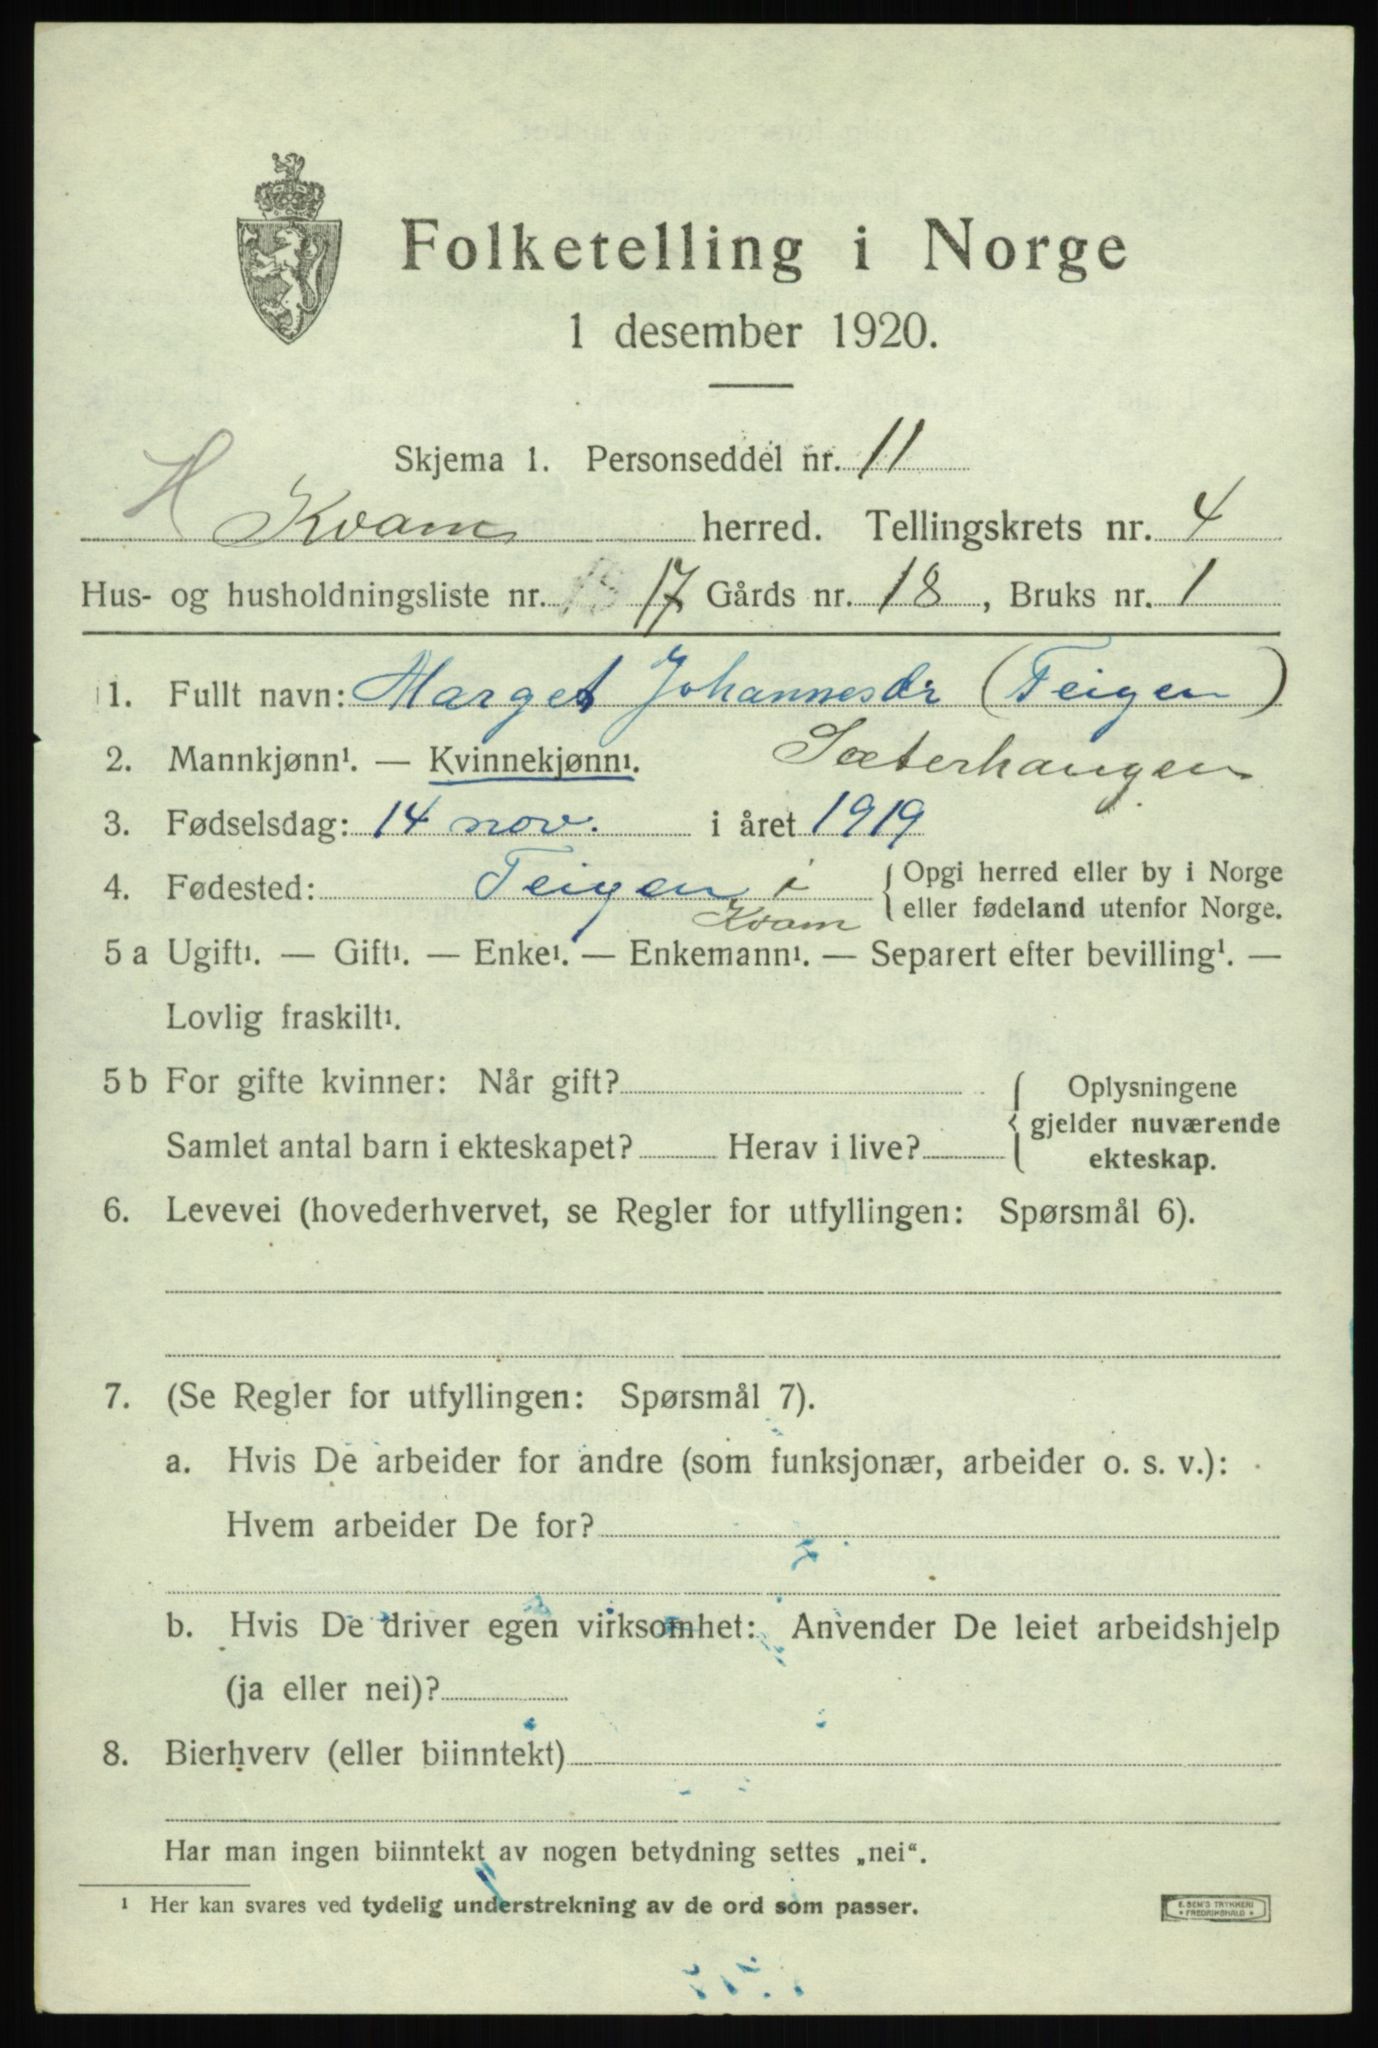 Folketelling i Norge
1 desember 1920.
Skjema 1. Personseddel nr. 11
H Kvam herred. Tellingskrets nr. 4
Hus- og husholdningsliste nr. 17 Gårds nr. 18, Bruks nr. 1
1. Fullt navn: Marget Johannesdr (Teigen)
2. Mannkjønn¹. — Kvinnekjønn¹. Sæterhaugen
3. Fødselsdag: 14 nov. i året 1919
4. Fødested: Teigen i Kvam { Opgi herred eller by i Norge
eller fødeland utenfor Norge.
5 a Ugift¹. — Gift¹. — Enke¹. — Enkemann¹. — Separert efter bevilling¹. —
Lovlig fraskilt¹.
5 b For gifte kvinner: Når gift? { Oplysningene
gjelder nuværende
ekteskap.
Samlet antal barn i ekteskapet? Herav i live?
6. Levevei (hovederhvervet, se Regler for utfyllingen: Spørsmål 6).
7. (Se Regler for utfyllingen: Spørsmål 7).
a. Hvis De arbeider for andre (som funksjonær, arbeider o. s. v.):
Hvem arbeider De for?
b. Hvis De driver egen virksomhet: Anvender De leiet arbeidshjelp
(ja eller nei)?
8. Bierhverv (eller biinntekt)
Har man ingen biinntekt av nogen betydning settes „nei“.
¹ Her kan svares ved tydelig understrekning av de ord som passer.
E. SEM'S TRYKKERI
* FREDRIKSHALD *